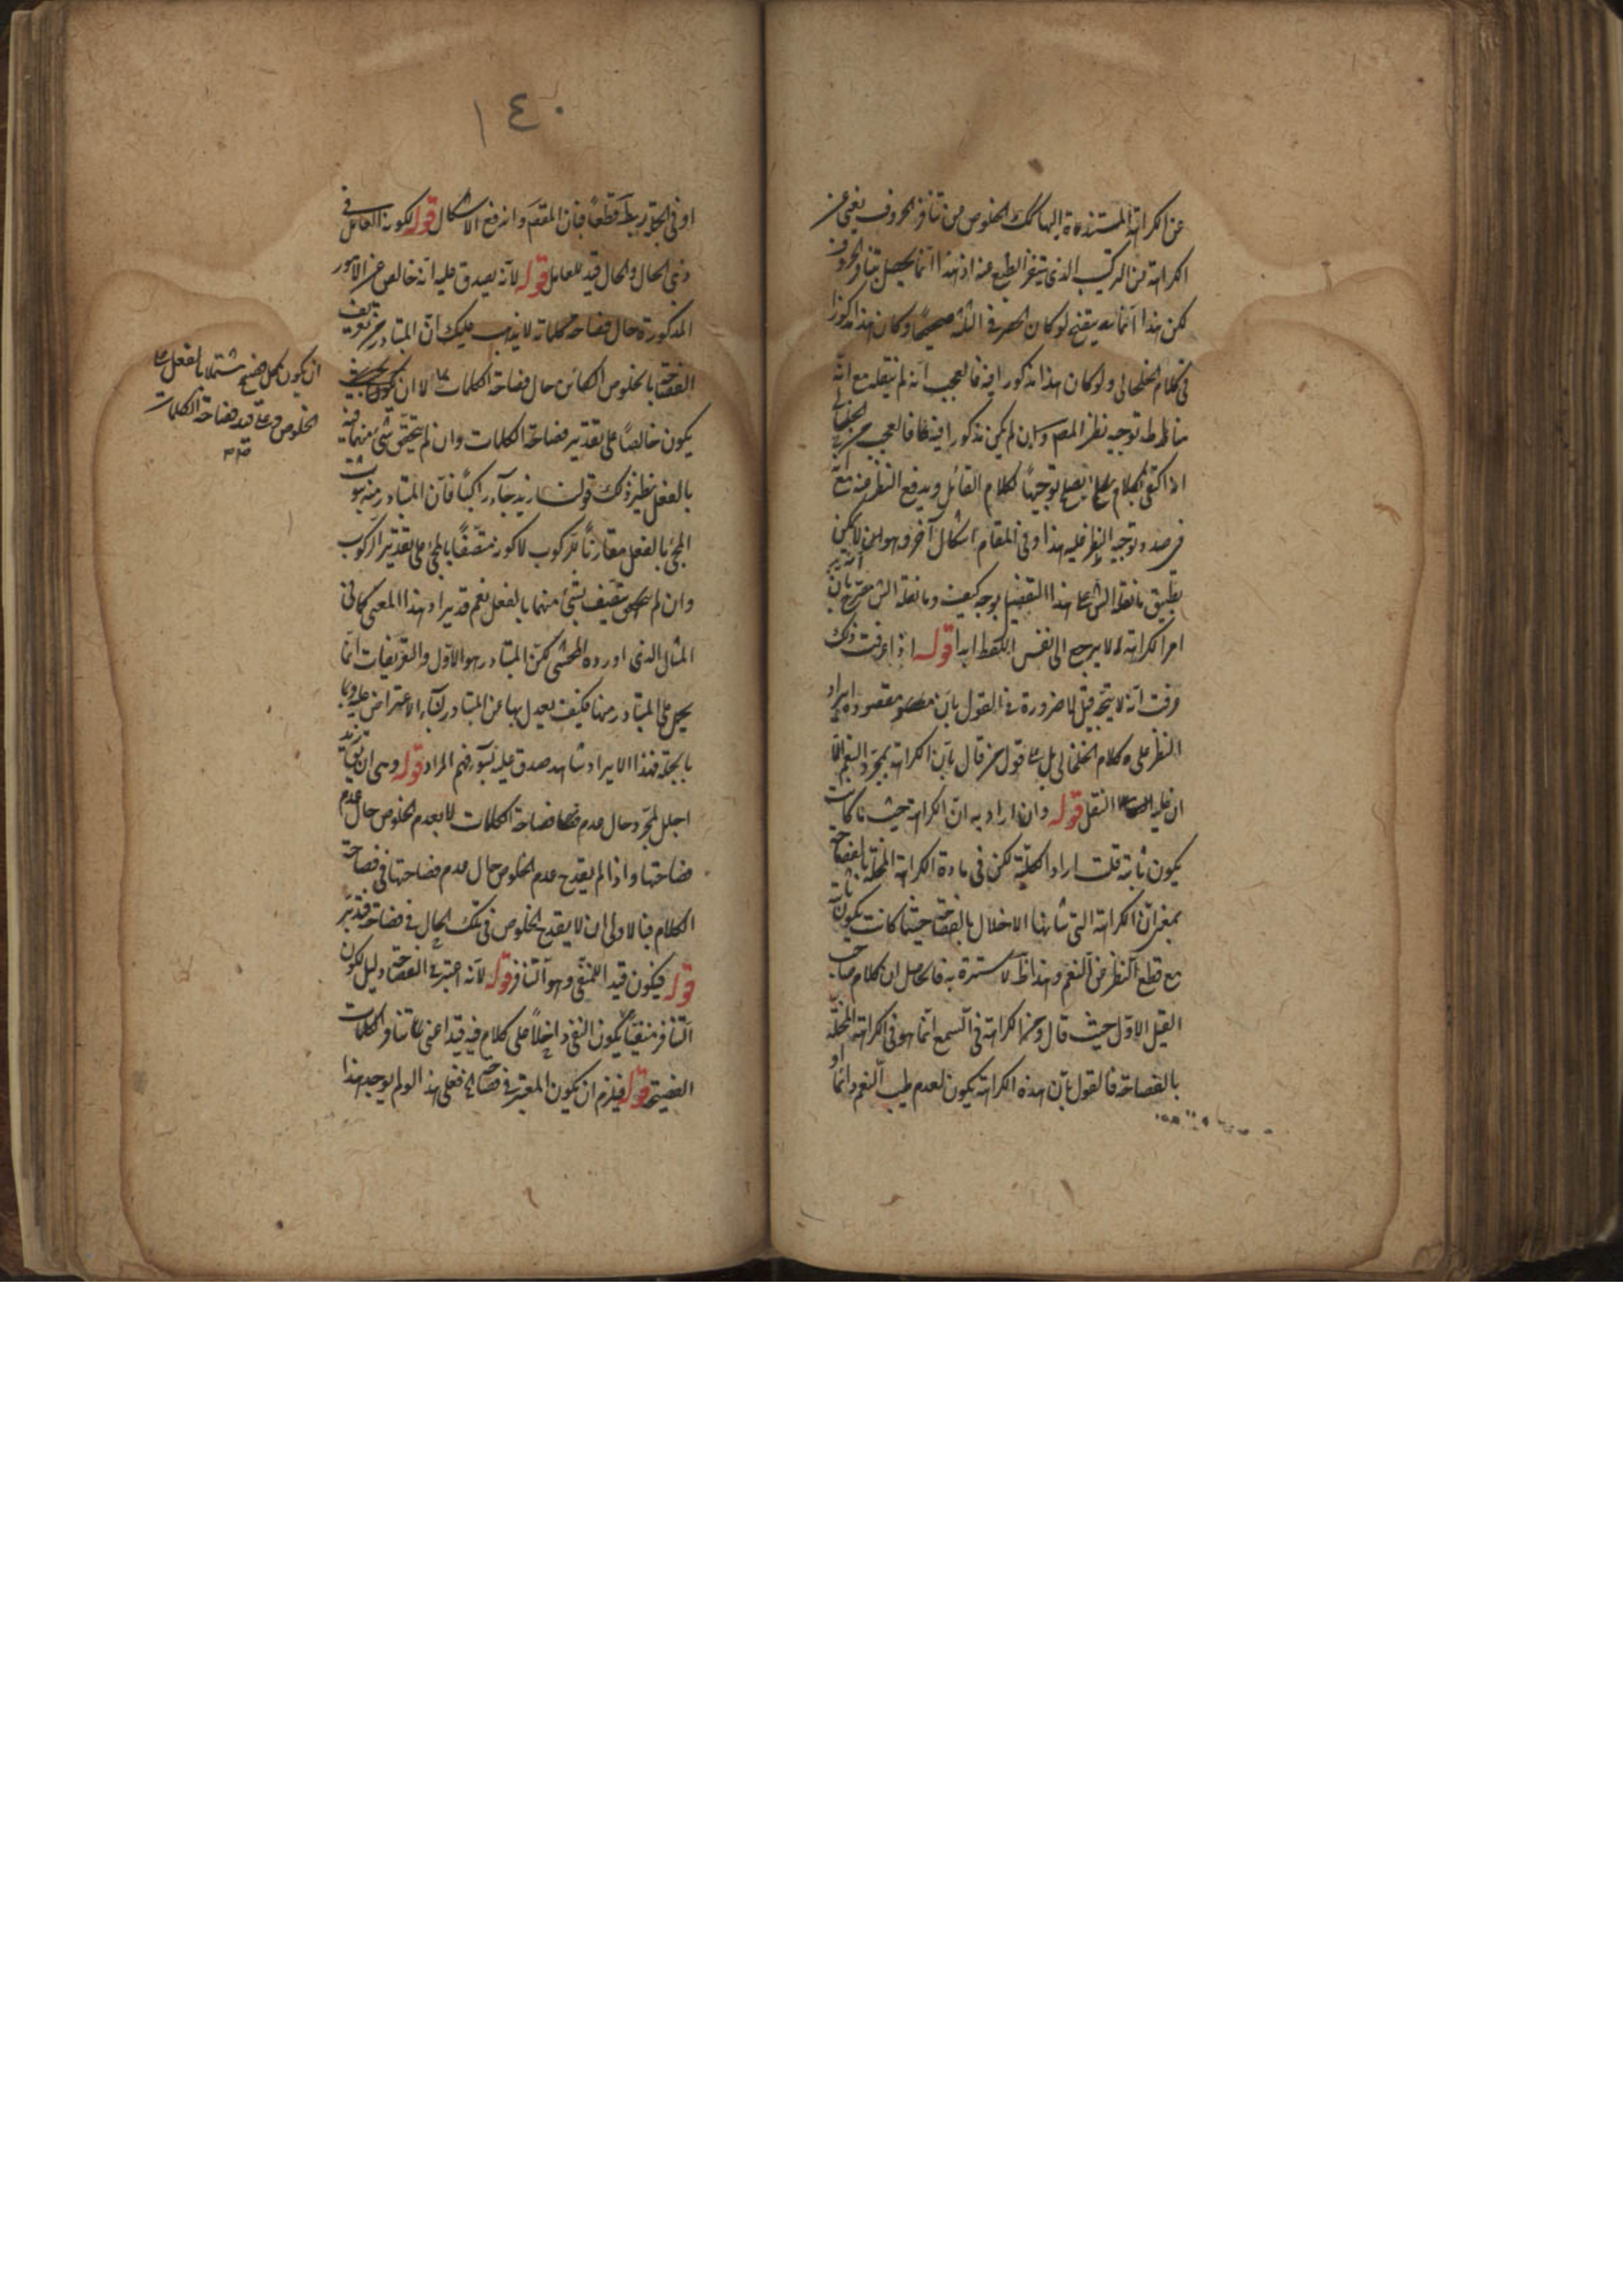 عن الكراهة المستندة اليها كك الخلوص من تنافر الحروف يغنى عن
الكراهة من التركيب الذى يتنفر الطبع عنه اذ هذا انما يحصل بتنافر الحروف
لكن هذا انما يتم لو كان الحصر فى الثلثة صحيحا وكان هذا مذكورا
فى كلام الخلخالى ولو كان هذا مذكورا فيه فالعجب انه لم ينقله مع انه
توجيه نظر المصـ وان لم يكن مذكورا فيه فالعجب من
اذ اكتفى بكلام يصلح توجيها لكلام القائل ويدفع النظر عنه مع انه
فى صدد توجيه النظر فليه هذا وفى المقام اشكال آخر وهو انه لا يمكن
تطبيق ما نقله الشـ على هذا التفصيل بوجه كيف وما نقله الشـ صريح بان
امر الكراهة لا يرجع الى نفس اللفظ ابدا قوله اذا عرفت ذلك
عرفت انه لا يتجه قيل لا ضرورة فى القول بان مقصوده ايراد
النظر على كلام الخلخالى بل على قول من قال بان الكراهة بمجرد النغم الا
ان عليه النقل قوله وان اراد به ان الكراهة حيث ما كانت
يكون ثابتة قلت اراد الكلية لكن فى مادة الكراهة المخلة بالفصاحة
بمعنى ان الكراهة التى شانها الاخلال بالفصاحة حيثما كانت يكون ثابتة
مع قطع النظر عن النغم وهذا ظ لا سترة به فالحاصل ان كلام صاحب
القيل الاول حيث قال ومن الكراهة فى السمع انما هو فى الكراهة المخلة
بالفصاحة فالقول بان هذه الكراهة يكون لعدم طيب النغم وانما او
١٤٠
او فى الجزء ربط قطعا فبان المقصـ واندفع الاشكال قوله لكونه العامل فى
ذى الحال والحال قيد للعامل قوله لانه يصدق عليه انه خالص عن الامور
المذكورة حال فصاحة كلماته لا يذهب عليك ان المتبادر من تعريف
الفصاحة بالخلوص الكائن حال فصاحة الكلمات لا ان يكون بحيث
يكون خالصا على تقدير فصاحة الكلمات وان لم يتحقق شئ منهما فيه
بالفعل نظير ذلك قولنا زيد جاء راكبا فان المتبادر منه ثبوت
المجئ بالفعل مقارنا للركوب لا كونه متصفا بالمجئ على تقدير الركوب
وان لم يتصف بشئ منهما بالفعل نعم قد يراد هذا المعنى كما فى
المثال الذى اورده المحشى لكن المتبادر هو الاول والتعريفات انما
يحمل على المتبادر منها فكيف يعدل بها عن المتبادر لبناء الاعتراض عليه وبا
بالجملة فهذا الايراد شاهد صدق عليه بسوء فهم المراد قوله وهى ان يق
اجلل لمجرد حال عدم فصاحة الكلمات لا بعدم الخلوص حال عدم
فصاحتها واذا لم يقدح عدم الخلوص حال عدم فصاحتها فى فصاحة
الكلام فبالاولى ان لا يقدح الخلوص فى تلك الحال فى فصاحته فتدبر
قوله فيكون قيدا للمنفى وهو التنافر قوله لانه اعتبر فى الفصاحة دليل لكون
التنافر منفيا يكون النفى داخلا على كلام فيه قيد اعنى تنافر الكلمات
الفصيحة قوله فيلزم ان يكون المعتبر فى فصاحة فعلى هذا لو لم يوجد هذا
ان يكون كل فصيح مشتملا بالفعل على
الخلوص وعلى قيد فصاحة الكلمات